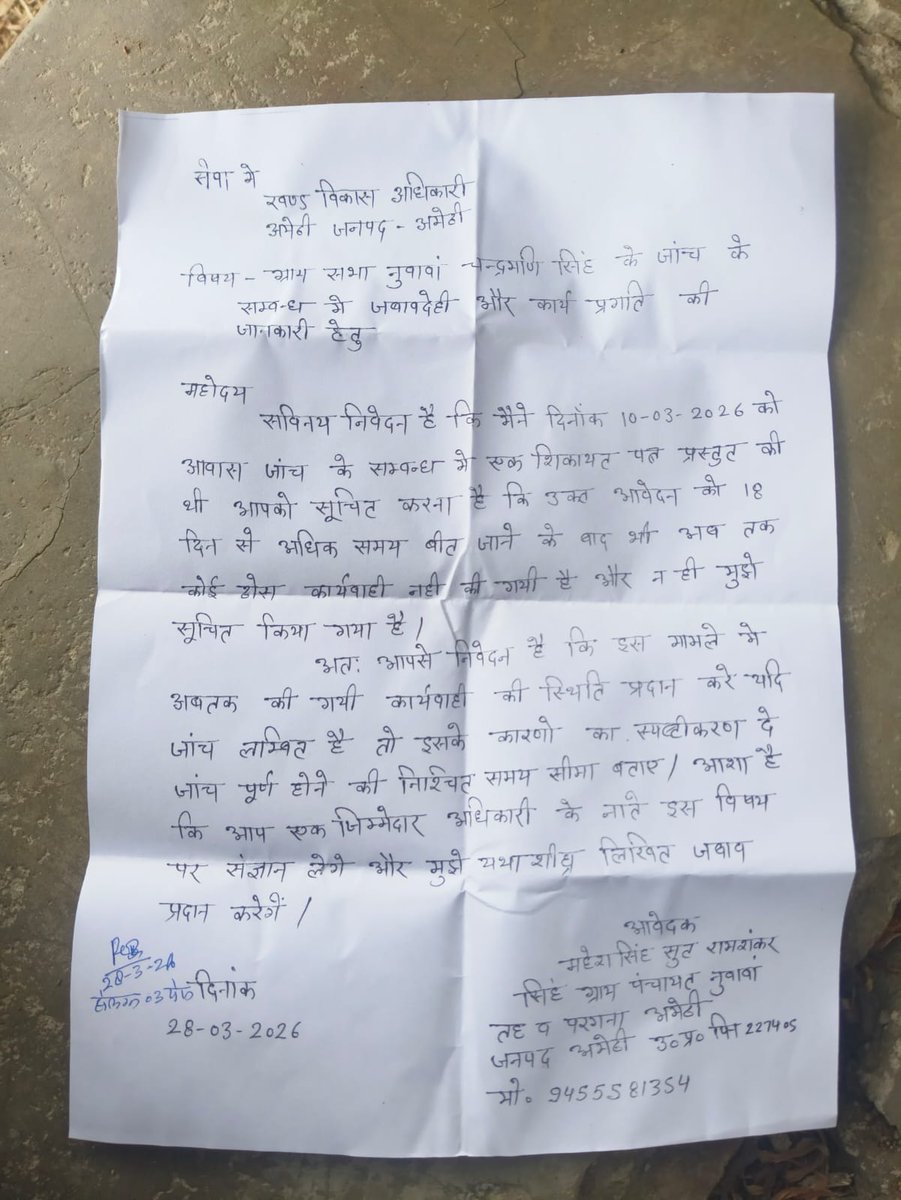 सेवा मे
खण्ड विकास अधिकारी
अमेठी जनपद - अमेठी
विषय - ग्राम सभा नुवावां चन्द्रमणि सिंह के जांच के
सम्बन्ध मे जवाबदेही और कार्य प्रगति की
जानकारी हेतु
महोदय
सविनय निवेदन है कि मैने दिनाँक 10-03-2026 को
आवास जांच के सम्बन्ध मे एक शिकायत पत्र प्रस्तुत की
थी आपको सूचित करना है कि उक्त आवेदन को 18
दिन से अधिक समय बीत जाने के बाद भी अब तक
कोई ठोस कार्यवाही नही की गयी है और न ही मुझे
सूचित किया गया है /
अतः आपसे निवेदन है कि इस मामले मे
अबतक की गयी कार्यवाही की स्थिति प्रदान करे यदि
जांच लम्बित है तो इसके कारणो का स्पष्टीकरण दे
जांच पूर्ण होने की निश्चित समय सीमा बताए / आशा है
कि आप एक जिम्मेदार अधिकारी के नाते इस विषय
पर संज्ञान लेगे और मुझे यथाशीघ्र लिखित जवाब
प्रदान करेगें /
आवेदक
महेश सिंह सुत रामशंकर
सिंह ग्राम पंचायत नुवावां
तह व परगना अमेठी
जनपद अमेठी उ०प्र० पिन 227405
मो० 9455581354
28-3-26
03
दिनांक
28-03-2026